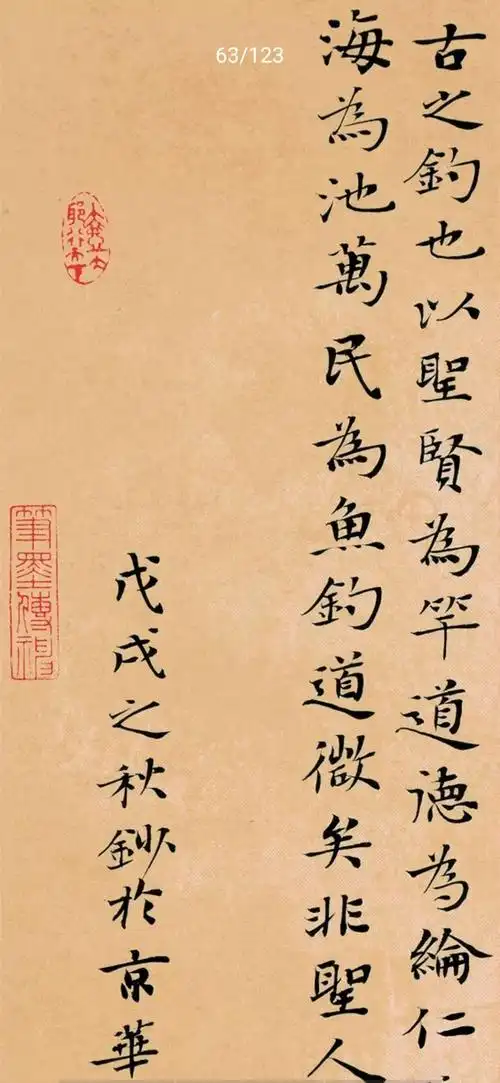 63/123
古之釣也以聖賢為竿道德為綸仁
海為池萬民為魚釣道微矣非聖人
戊戌之秋鈔於京華
筆墨傳